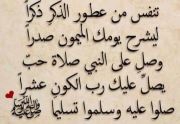 تنفس من عطور الذكر ذكراً
ليشرح يومك الميمون صدراً
وصل على النبي صلاة حب
يصل عليك رب الكون عشراً
صلوا عليه وسلموا تسليما
ﷺ